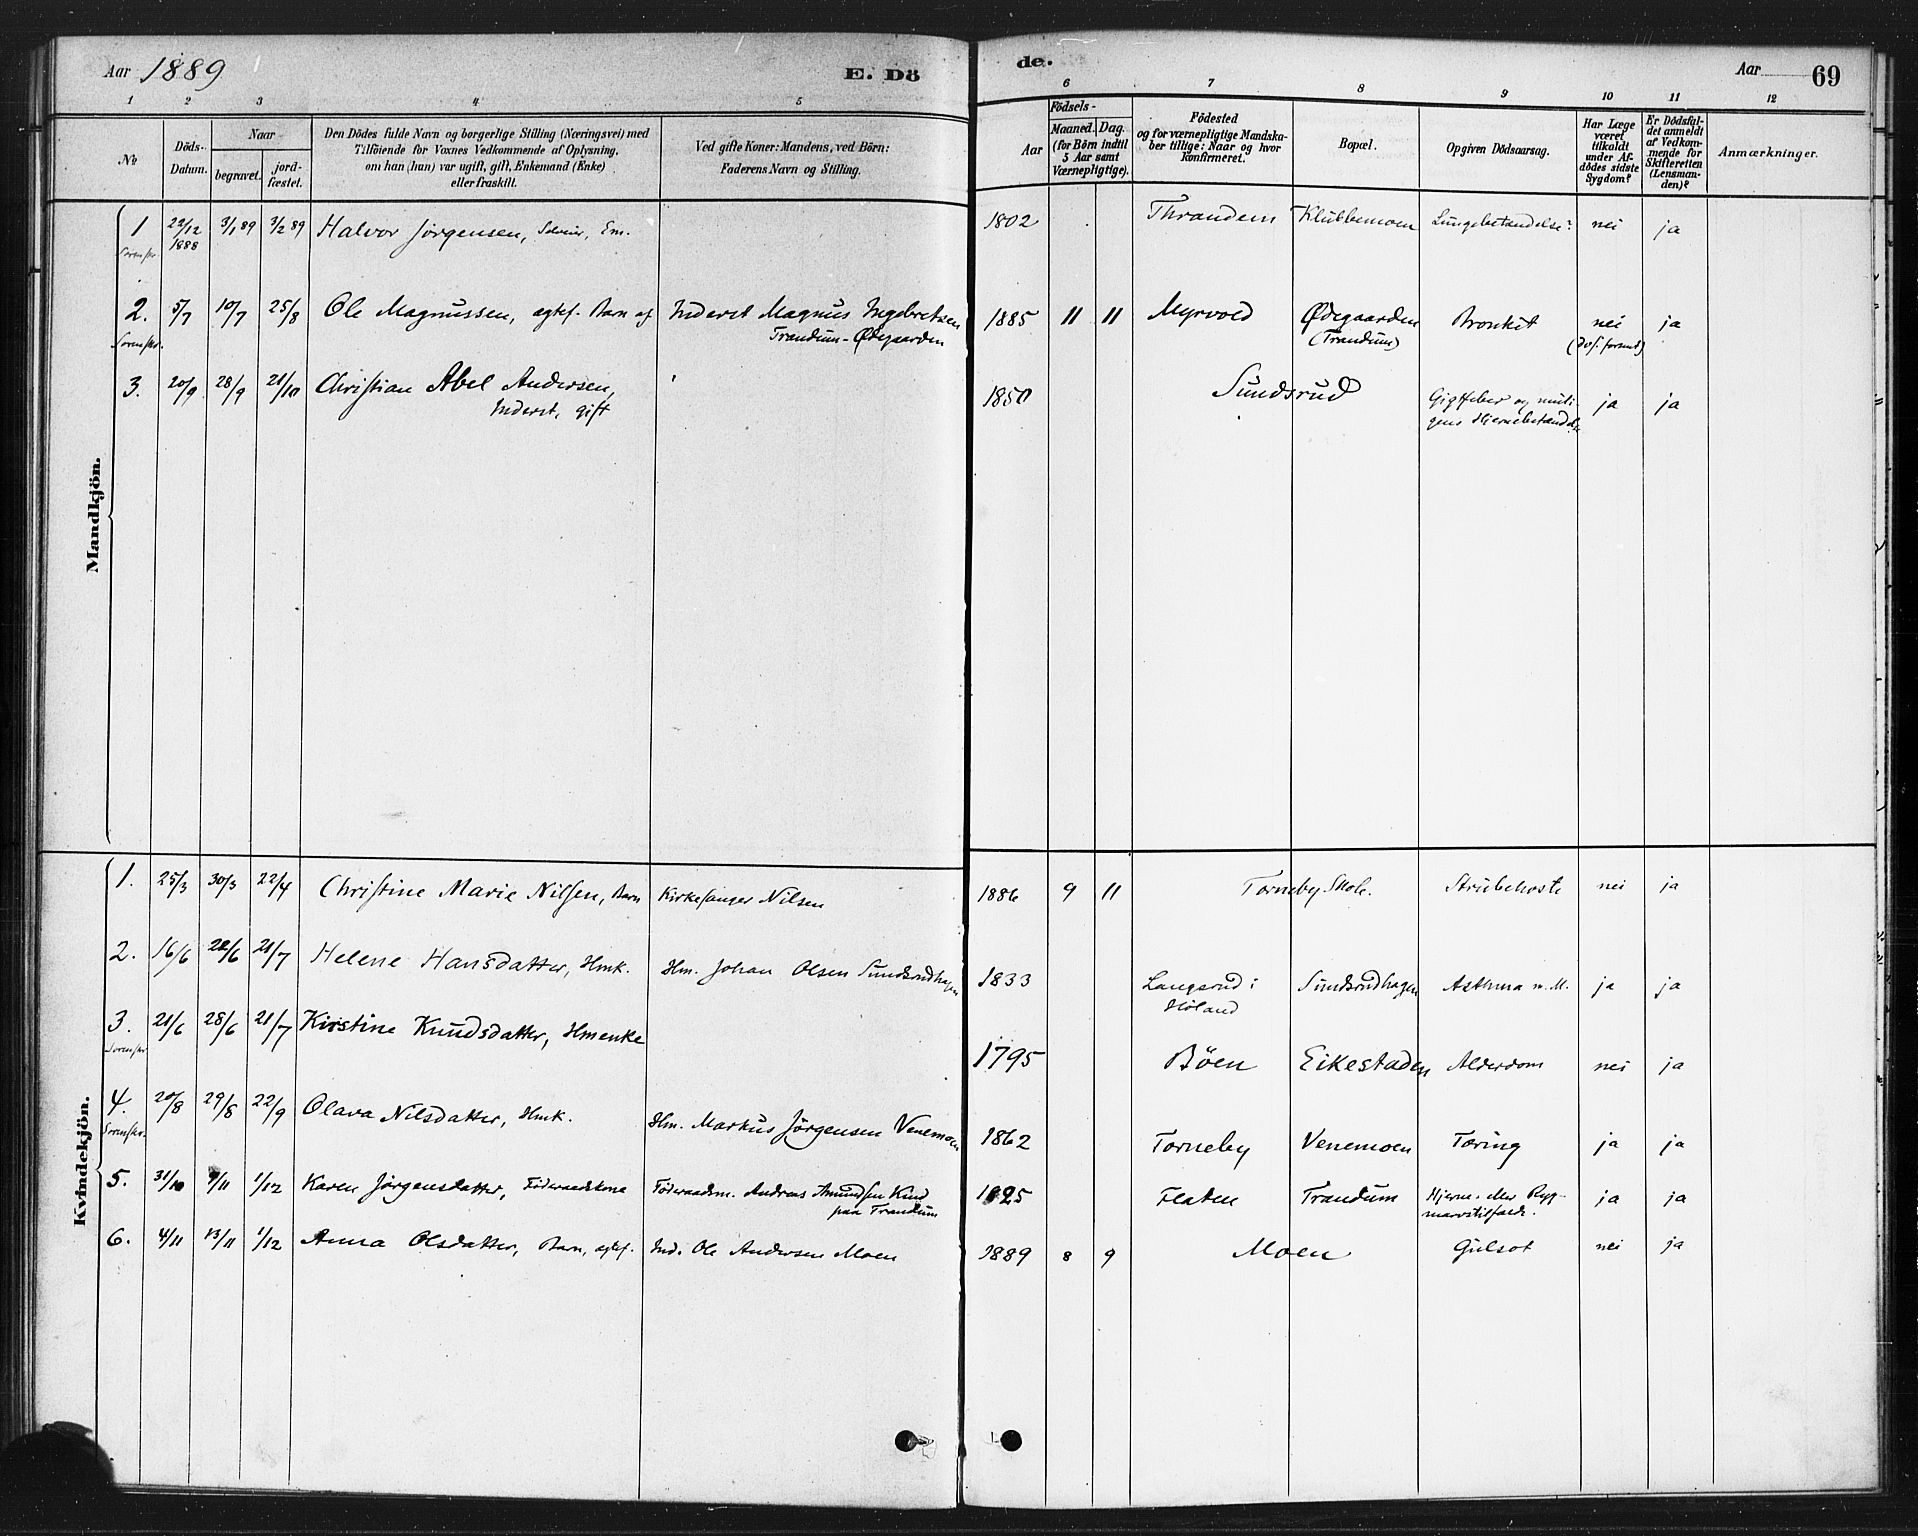 Aar 1889 E. Dö
de. Aar 69
1 2 3 4 5 6 7 8 9 10 11 12
No
Döds-Datum.
Naar
begravet.
jord-fæstet.
Den Dödes fulde Navn og borgerlige Stilling (Næringsvei) med
Tilföiende for Voxnes Vedkommende af Oplysning,
om han (hun) var ugift, gift, Enkemand (Enke)
eller fraskilt.
Ved gifte Koner: Mandens, ved Börn:
Faderens Navn og Stilling.
Födsels-
Aar
Maaned. Dag.
(for Börn indtil
5 Aar samt
Værnepligtige).
Födested
og for værnepligtige Mandska-
ber tillige: Naar og hvor
konfirmeret.
Bopæl.
Opgiven Dödsaarsag.
Har Læge
været
tilkaldt
under Af-
dödes sidste
Sygdom?
Er Dödsfal-
det anmeldt
af Vedkom-
mende for
Skifteretten
(Lensman-
den)?
Anmærkninger.
Mandkjön.
1 22/12 1888 3/1 89 3/2 89 Halvor Jørgensen, Selveier, Em. 1802 Thrandem Klubbemoen Lungebetændelse? nei ja
2. 5/7 10/7 25/8 Ole Magnussen, ægtef. Barn af Inderst Magnus Ingebretsen 1885 11 11 Myrvold Ødegaarden Bronkit nei ja
Trandum-Ødegaarden (Trandum)
3. 20/9 28/9 21/10 Christian Abel Andersen, 1850 Sundsrud Gigtfeber og muli- ja ja
Inderst, gift gens Hjernebetændelse
Kvindekjön.
1. 25/3 30/3 22/4 Christine Marie Nilsen, Barn Kirkesanger Nilsen 1886 9 11 Torneby Skole. Strubehoste nei ja
2. 16/6 22/6 21/7 Helene Hansdatter, Hmk. Hm. Johan Olsen Sundsrudhagen 1833 Langsrud i Sundsrudhagen Asthma m. M. ja ja
Høland
3. 21/6 28/6 21/7 Kirstine Knudsdatter, Hmenke 1795 Bøen Eikestaden Alderdom nei ja
4. 20/8 29/8 22/9 Olava Nilsdatter, Hmk. Hm. Markus Jørgensen Venemoen 1862 Torneby Venemoen Tæring ja ja
5. 31/10 9/11 1/12 Karen Jørgensdatter, Föderaadskone Föderaadsm. Andreas Amundsen Kind 1825 Flaten Trandum Hjerne- eller Ryg- ja ja
paa Trandum marvstilfælde.
6. 4/11 13/11 1/12 Anna Olsdatter, Barn, ægtef. Ind. Ole Andersen Moen 1889 8 9 Moen Gulsot nei ja